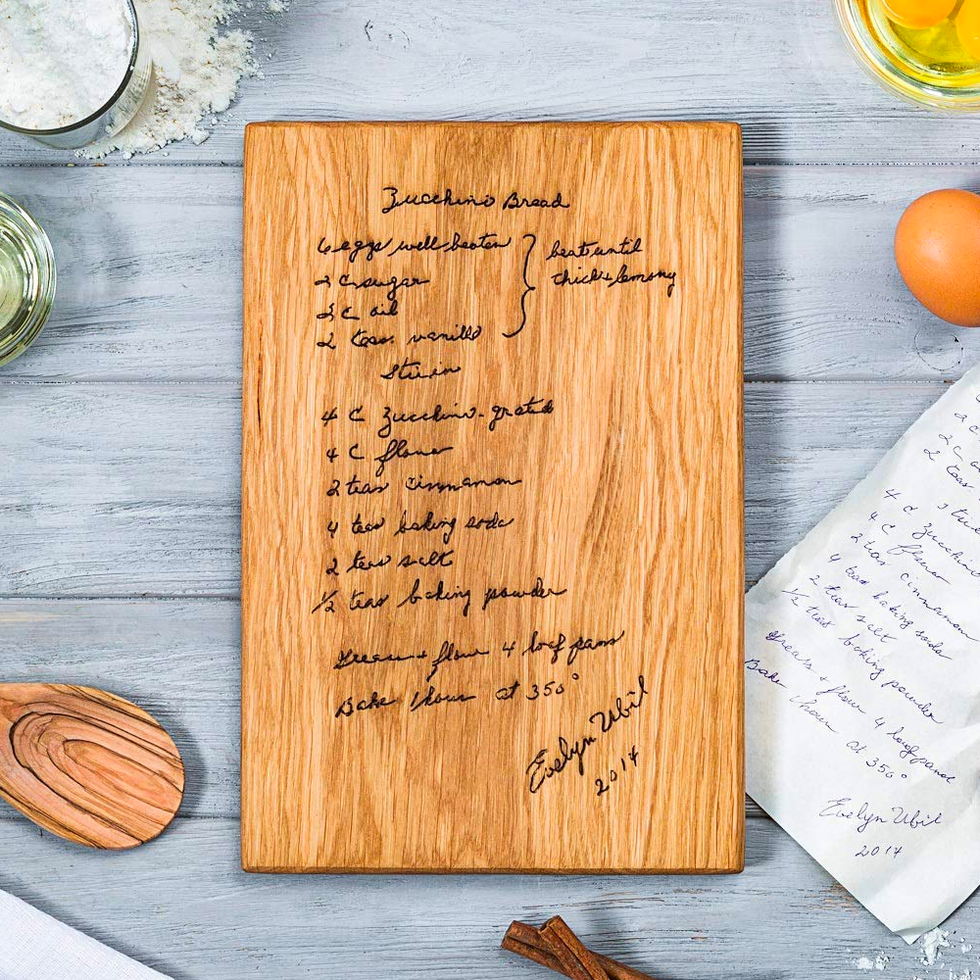 Zucchini Bread
6 eggs well beaten
2 C sugar
2 C oil
2 teas. vanilla
beat until
thick + lemony
Stir in
4 C Zucchini-grated
4 C flour
2 teas cinnamon
4 teas baking soda
2 teas salt
1/2 teas baking powder
Grease + flour 4 loaf pans
Bake 1 hour at 350°
Evelyn Ubil
2014
2 C
2 teas
4 C Zucchini
4 C flour
2 teas cinnamon
4 teas baking soda
2 teas salt
1/2 teas baking powder
Grease + flour 4 loaf pans
Bake 1 hour at 350°
Evelyn Ubil
2014